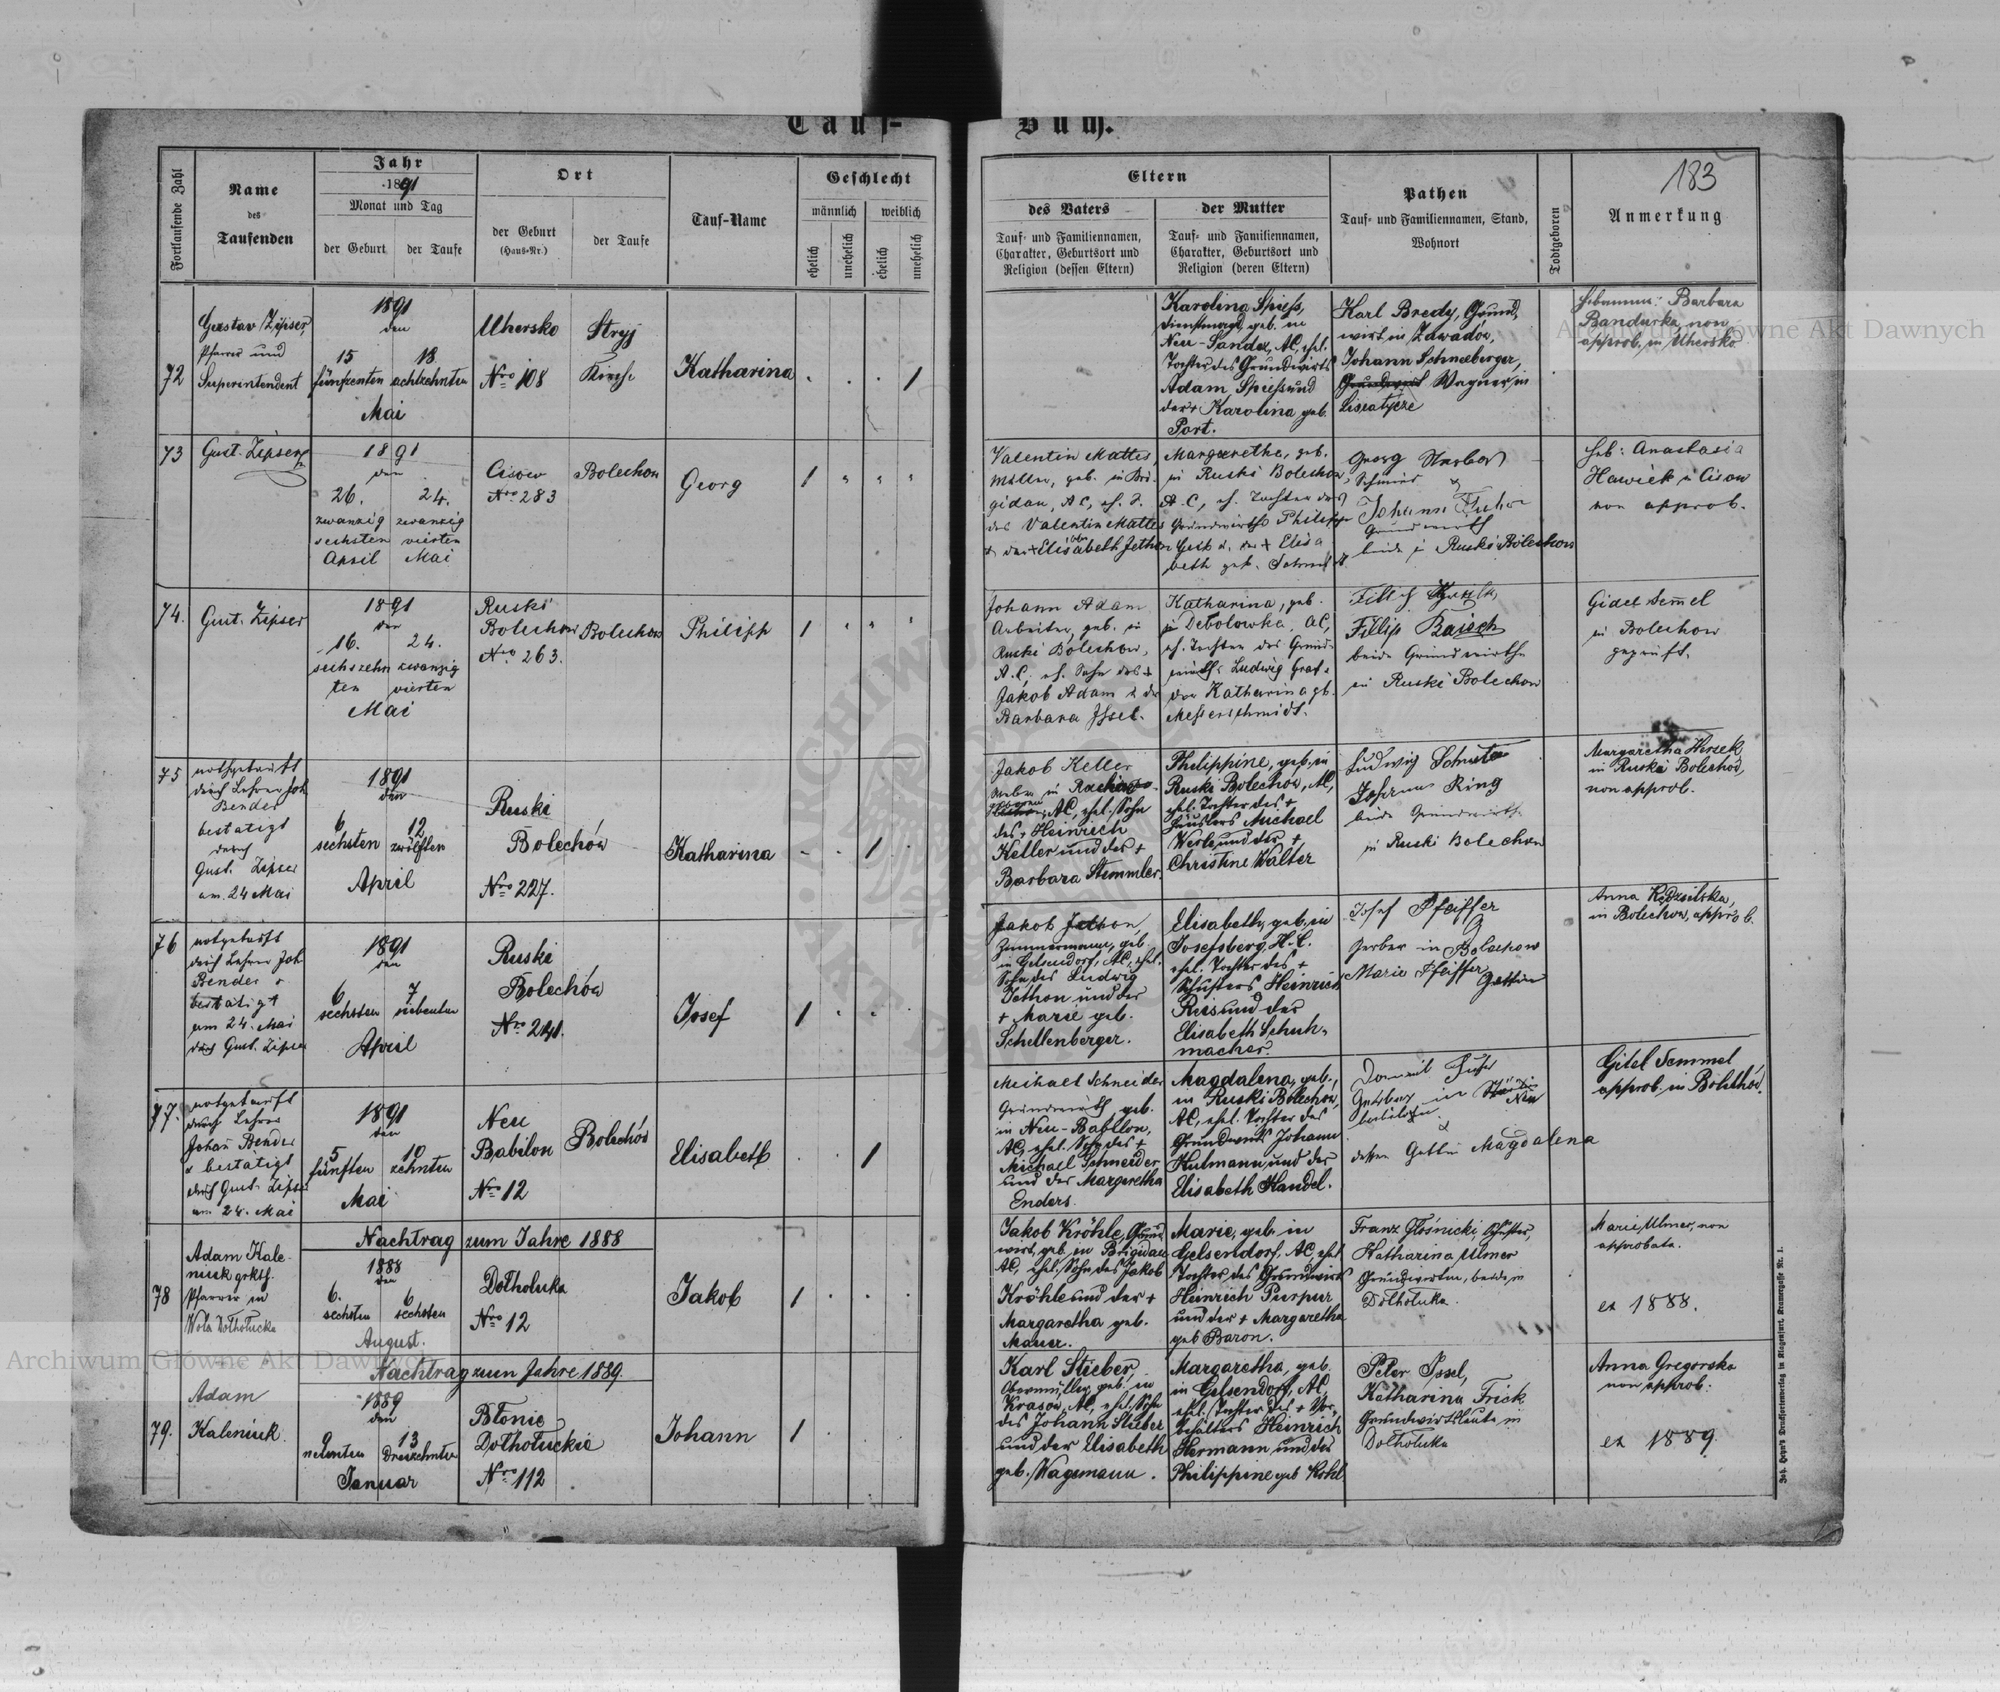 Tauf-
Buch.
Fortlaufende Zahl
Name
des
Taufenden
Jahr
1891
Monat und Tag
der Geburt
der Taufe
Ort
der Geburt
(Haus-Nr.)
der Taufe
Tauf-Name
Geschlecht
männlich
weiblich
ehelich
unehelich
ehelich
unehelich
Eltern
des Vaters
Tauf- und Familiennamen,
Charakter, Geburtsort und
Religion (dessen Eltern)
der Mutter
Tauf- und Familiennamen,
Charakter, Geburtsort und
Religion (deren Eltern)
Pathen
Tauf- und Familiennamen, Stand,
Wohnort
Todtgeboren
183
Anmerkung
72
Gustav Zipser,
Pfarrer und
Superintendent
1891
den
15 18
fünfzenten achtzehnten
Mai
Uhersko
Nro 108
Stryj
Kirche
Katharina
1
Karolina Spiess,
Dienstmagd, geb. in
Neu-Sandez, AC, ehel.
Tochter des Grundwirts
Adam Spiess und
der + Karolina geb.
Port.
Karl Bredy, Grund-
wirt in Zawadow,
Johann Schneeberger,
Grundwirt Wagner in
Lisiatycze
Hebamme: Barbara
Bandurka, non
approb. in Uhersko
73
Gust. Zipser
1891
den
26. 24.
zwanzig zwanzig
sechsten vierten
April Mai
Cisow
Nro 283
Bolechow
Georg
1
Valentin Mattes,
Müller, geb. in Bri-
gidau, AC, eh. S.
des Valentin Mattes
Elisabeth Jethon
Margarethe, geb.
in Ruski Bolechow
A.C, eh. Tochter des
Grundwirths Philipp
Elisa
beth geb.
Georg
Schmied
Johann
Grundwirth
beide in Ruski Bolechow
Heb: Anastasia
Hawick in Cisow
non approb.
74.
Gust. Zipser
1891
den
16. 24.
sechszehn zwanzig
ten vierten
Mai
Ruski
Bolechow
Nro 263.
Bolechow
Philipp
1
Johann Adam
Arbeiter, geb. in
Ruski Bolechow,
A.C, eh. Sohn des +
Jakob Adam & der
Barbara Issel.
Katharina, geb.
in Debolowka, AC,
eh. Tochter des Grund-
wirths Ludwig Graf &
der Katharina gb.
Messerschmidt.
Fillip
Fillip Baisch
beide Grundwirthe
in Ruski Bolechow
Gidel Semel
in Bolechow
geprüft.
75
nothgetauft
durch Lehrer Joh
Bender
bestätigt
durch
Gust. Zipser
am 24 Mai
1891
den
6 12
sechsten zwölften
April
Ruski
Bolechów
Nro 227.
Katharina
1
Jakob Keller
Weber in
AC, ehel. Sohn
des + Heinrich
Keller und der +
Barbara Stemmler.
Philippine, geb. in
Ruski Bolechow, AC,
ehel. Tochter des +
Häuslers Michael
Werle und der +
Christine Walter
Ludwig
Johann Ring
beide Grundwirthe
in Ruski Bolechow
Margaretha Hersek
in Ruski Bolechow,
non approb.
76
notgetauft
durch Lehrer Joh
Bender &
bestätigt
am 24. Mai
durch Gust. Zipser
1891
den
6 7
sechsten siebenten
April
Ruski
Bolechów
Nro 241.
Josef
1
Jakob Jethon,
Zimmermann, geb.
in Gelsendorf, AC, ehel.
Sohn des Ludwig
Jethon und der
+ Marie geb.
Schellenberger.
Elisabeth, geb. in
Josefsberg, H.C.
ehel. Tochter des +
Schusters Heinrich
Reis und der
Elisabeth Schuh-
macher.
Josef Pfeiffer
Gerber in Bolechow
Marie Pfeiffer
Gattin
Anna
in Bolechow, approb.
77.
notgetauft
durch Lehrer
Johañ Bender
& bestätigt
durch Gust. Zipser
am 24. Mai
1891
den
5 10
fünften zehnten
Mai
Neu
Babilon
Nro 12
Bolechów
Elisabeth
1
Michael Schneider
Grundwirth, geb.
in Neu-Babilon,
AC, ehel. Sohn des +
Michael Schneider
und der Margaretha
Enders.
Magdalena, geb.
in Ruski Bolechow,
AC, ehel. Tochter des
Grundwirts Johann
Hulmann und der
Elisabeth Handel.
in
Neu
babilon
&
dessen Gattin Magdalena
Gitel Semmel
approb. in Bolechów.
Nachtrag zum Jahre 1888
78
Adam Kale-
niuk grkth.
Pfarrer in
Wola Dołhołucka
1888
den
6. 6
sechsten sechsten
August.
Dołhołuka
Nro 12
Jakob
1
Jakob Kröhle, Grund
wirt, geb. in Brigidau
AC, ehel. Sohn des Jakob
Kröhle und der +
Margaretha geb.
Mauer.
Marie, geb. in
Gelsendorf, AC, ehel.
Tochter des Grundwirts
Heinrich Purpur
und der + Margaretha
geb Baron.
Franz Głośnicki, Schuster,
Katharina Ulmer
Grundwirtin, beide in
Dołhołuka.
Marie Ulmer, non
approbata.
ex 1888.
Nachtrag zum Jahre 1889.
79.
Adam
Kaleniuk
1889
den
9 13
neunten Dreizehnten
Januar
Błonie
Dołhołuckie
Nro 112
Johann
1
Karl Stieber,
Obermüller, geb. in
Krasow, AC, ehel. Sohn
des Johann Stieber
und der Elisabeth
geb. Wagemann.
Margaretha, geb.
in Gelsendorf, AC,
ehel. Tochter des + Vor-
behälters Heinrich
Hermann und der
Philippine geb Kohl
Peter Issel,
Katharina Frick
Grundwirtsleute in
Dołhołuka
Anna Gregorska
non approb:
ex 1889.
Joh. Heyn's Drucksortenverlag in Klagenfurt, Kramergasse Nr. 1.
Archiwum Główne Akt Dawnych
Archiwum Główne Akt Dawnych